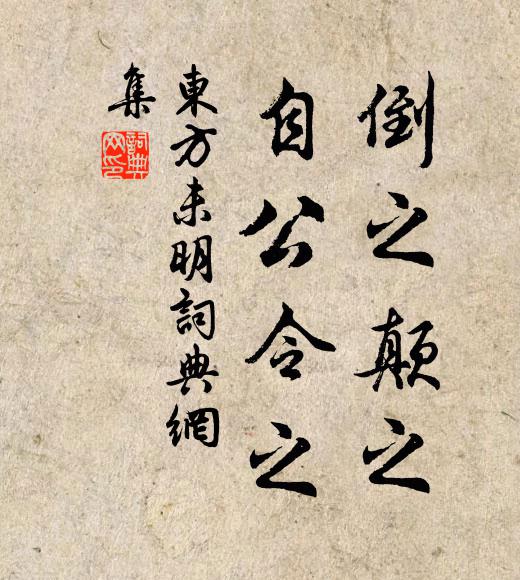 倒之颠之
自公令之
東方未明詞典網
集
詞典
网印